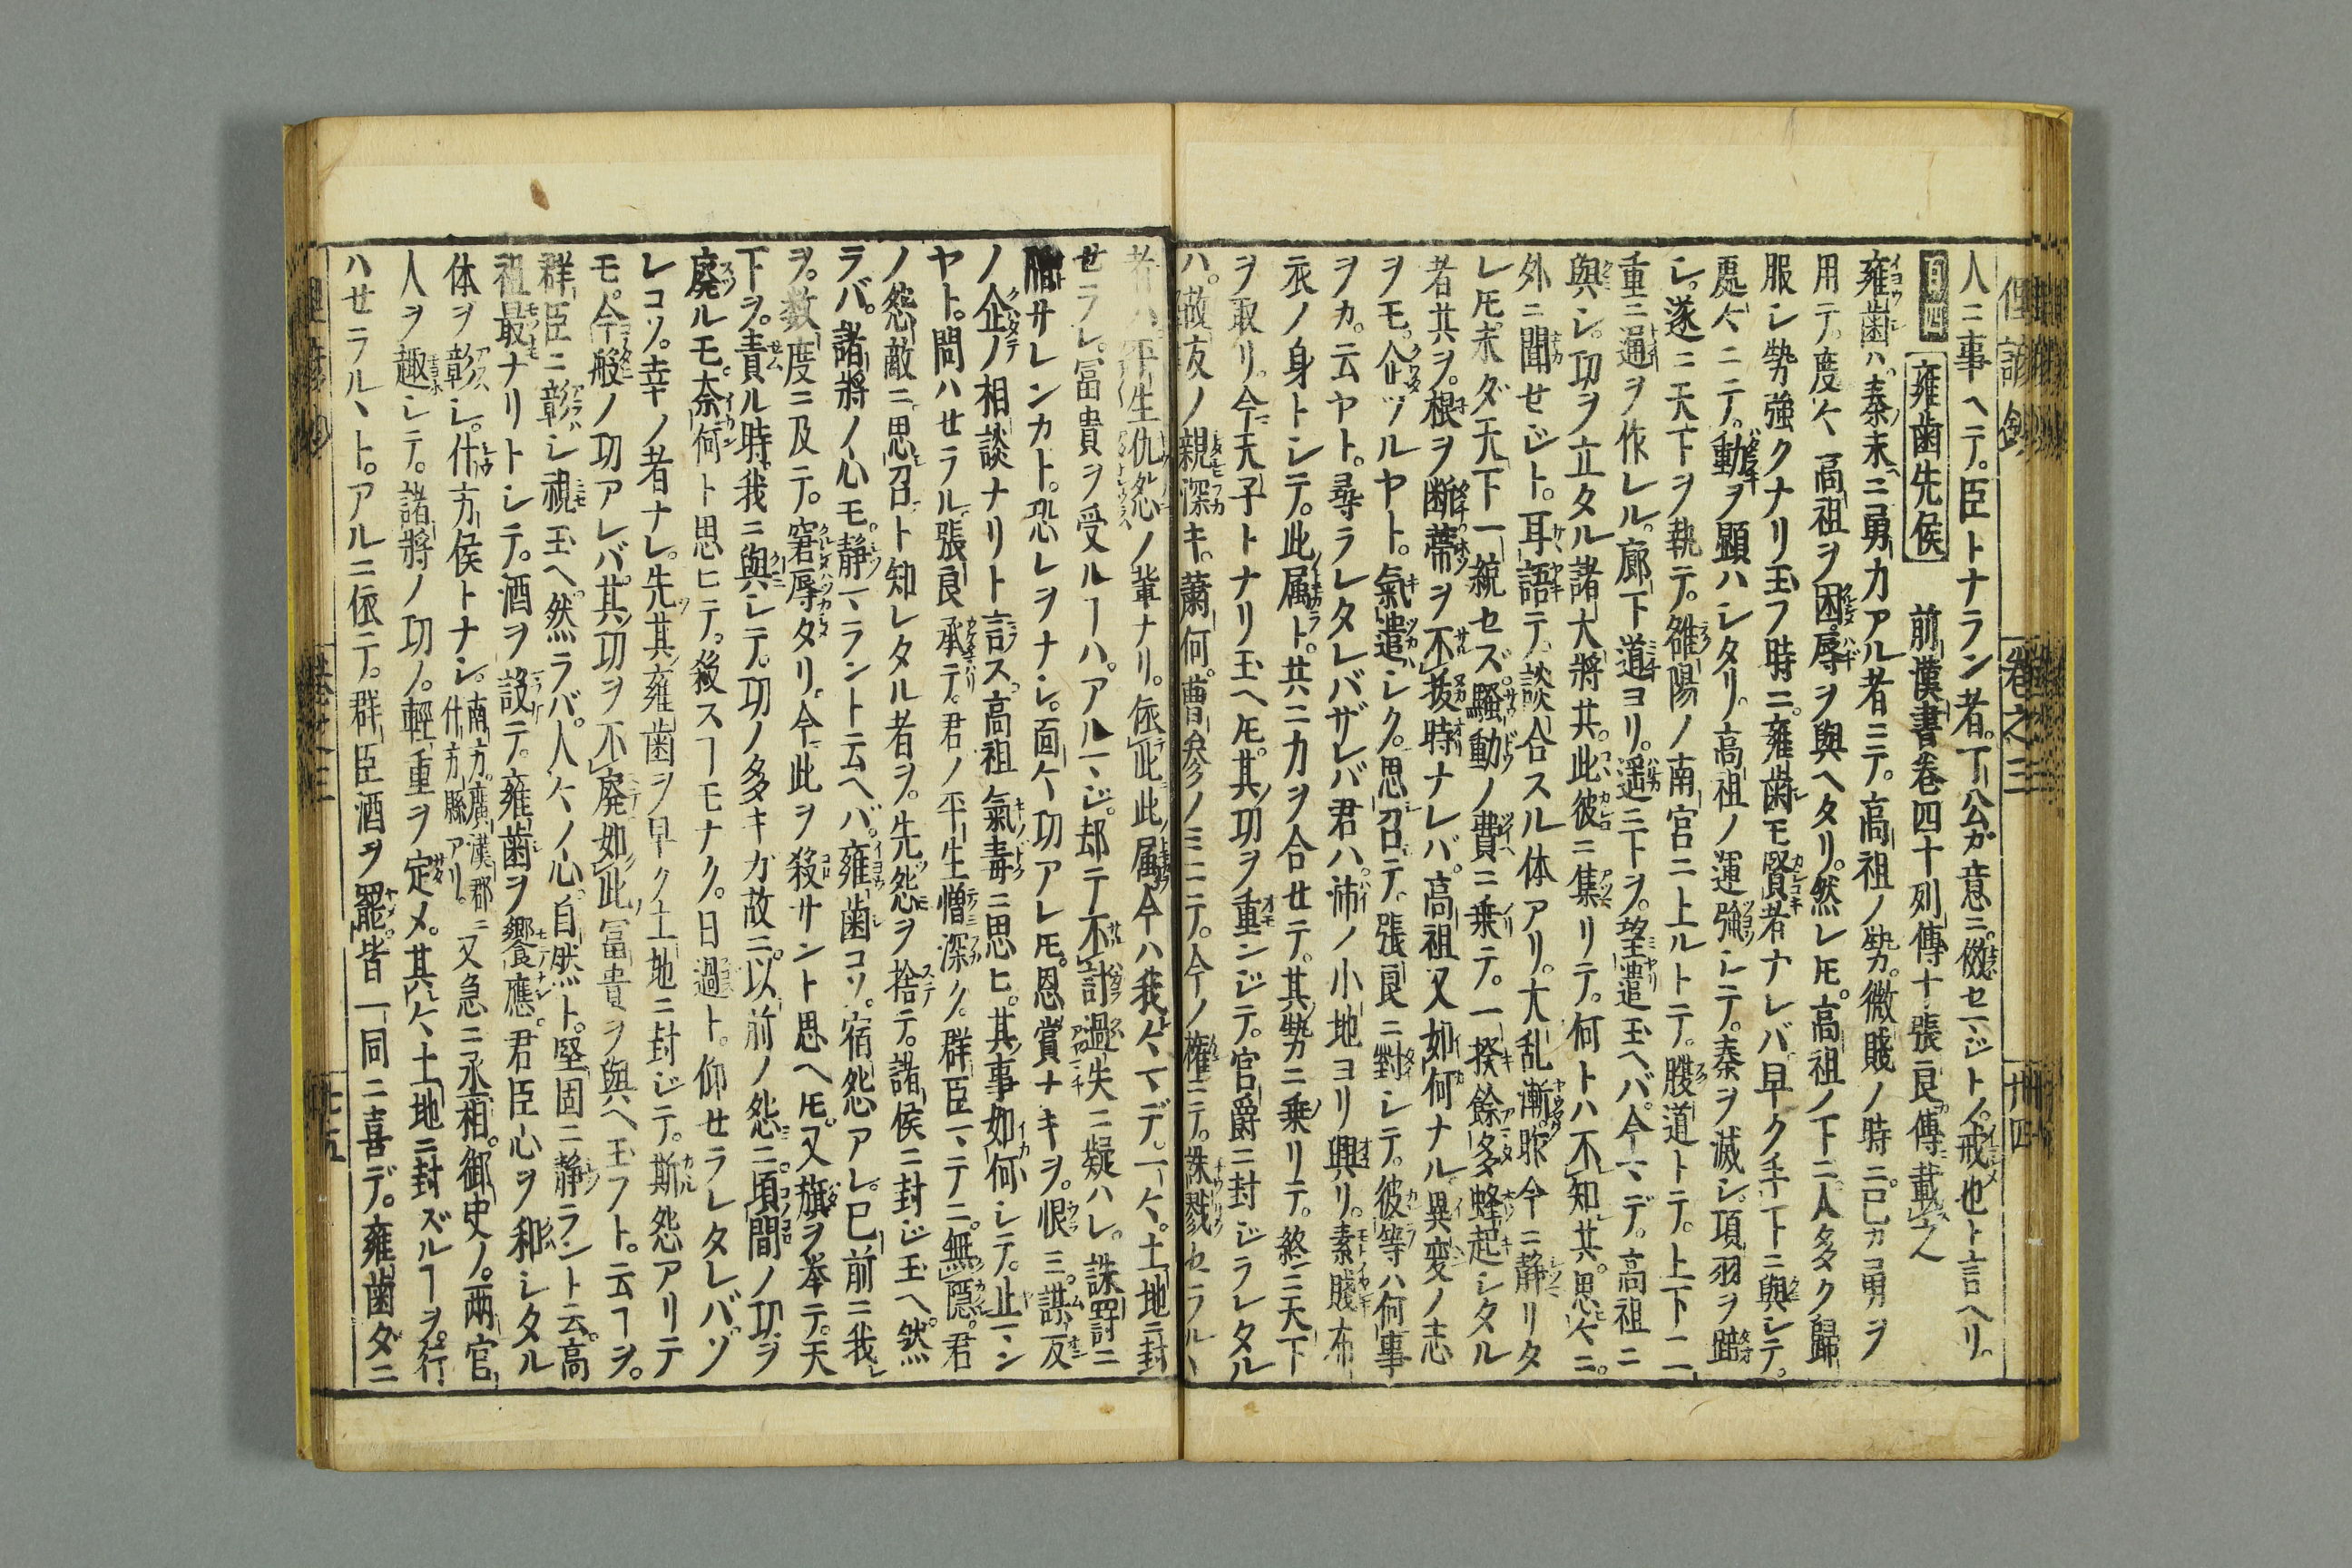 俚諺鈔 卷之三 卅四
人ニ事ヘテ。臣トナラン者。丁公ガ意ニ。傚セマジトノ。戒也ト言ヘリ。
百四 雍歯先侯 前漢書卷四十列傳十張良傳載之
雍歯ハ。秦末ニ勇力アル者ニテ。高祖ノ勢。微賤ノ時ニ。已カ勇ヲ
用テ。度々高祖ヲ困辱ヲ與ヘタリ。然レ𪜈。高祖ノ下ニ。人多ク歸
服シ勢強クナリ玉フ時ニ。雍歯モ賢者ナレバ早ク手下ニ與シテ。
處々ニテ。動ヲ顕ハシタリ。高祖ノ運強シテ。秦ヲ滅シ。項羽ヲ踣
シ。遂ニ天下ヲ執テ。雒陽ノ南宮ニ上ルトテ。腹道トテ。上下二
重ニ通ヲ作レル。廊下道ヨリ。遥ニ下ヲ。望遣玉ヘバ。今マデ。高祖ニ
與シ。功ヲ立タル諸大將其。此彼ニ集リテ。何トハ不知其。思々ニ。
外ニ聞セジト。耳語テ。談合スル体アリ。大乱漸昨今ニ静リタ
レ𪜈。未ダ天下一統セズ。騒動ノ費ニ乗テ。一揆餘多蜂起シタル
者其ヲ。根ヲ断蔕ヲ不抜時ナレバ。高祖又如何ナル異変ノ志
ヲモ。企ツルヤト。氣遣シク。思召テ。張良ニ對シテ。彼等ハ何事
ヲカ。云ヤト。尋ラレタレバザレバ君ハ。沛ノ小地ヨリ興リ。素賤布
衣ノ身トシテ。此属ト。共ニ力ヲ合セテ。其勢ニ乗リテ。終ニ天下
ヲ取リ。今天子トナリ玉ヘ𪜈。其功ヲ重ンジテ。官爵ニ封ジラレタル
ハ。故友ノ親深キ。蕭何。曹参ノミニテ。今ノ權ニテ。誅戮セラルヽ
者ハ。平生仇怨ノ輩ナリ。依此此属今ハ我々マデ。一々。土地ニ封
セラレ。冨貴ヲ受ルヿハ。アルマジ。却テ不計過失ニ疑ハレ。誅罸ニ
サレンカト。恐レヲナシ。面々功アレ𪜈。恩賞ナキヲ。恨ミ。謀反
ノ企ノ相談ナリト言ス。高祖氣毒ニ思ヒ。其事如何シテ。止マン
ヤト。問ハセラル。張良承テ。君ノ平生憎深ク。群臣マテニ。無隠。君
ノ怨敵ニ思召ト知レタル者ヲ。先怨ヲ捨テ。諸侯ニ封ジ玉ヘ。然
ラバ。諸將ノ心モ。静マラント云ヘバ。雍歯コソ。宿怨アレ。已前ニ我
ヲ。数度ニ及テ。窘辱タリ。今此ヲ殺サント思ヘ𪜈。又旗ヲ挙テ。天
下ヲ。責ル時。我ニ與シテ。功ノ多キガ故ニ。以前ノ怨ニ。項間ノ功ヲ
廃ルモ。奈何ト思ヒテ。殺スヿモナク。日過ト。仰セラレタレバゾ
レコソ。幸ノ者ナレ。先其雍歯ヲ早ク土地ニ封ジテ。斯怨アリテ
モ。今般ノ功アレバ。其功ヲ不廃如此冨貴ヲ與ヘ玉フト。云ヿヲ。
群臣ニ彰シ視玉ヘ。然ラバ。人々ノ心。自然ト。堅固ニ静ラント云。高
祖最ナリトシテ。酒ヲ設テ。雍歯ヲ饗應。君臣心ヲ和シタル
体ヲ彰シ。什方侯トナシ。南方。廣漢郡ニ什方縣アリ。又急ニ丞相。御史ノ。両官
人ヲ趣シテ。諸將ノ功ノ。輕重ヲ定メ。其々土地ニ封ズルヿヲ。行
ハセラルヽト。アルニ依テ。群臣酒ヲ罷。皆一同ニ喜デ。雍歯ダニ